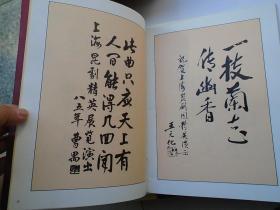 此曲只应天上有
人间能得几回闻
上海昆剧精英展览演出
八五年 曹禺
一枝兰花
传幽香
祝贺上海昆剧团精英演出
王元化